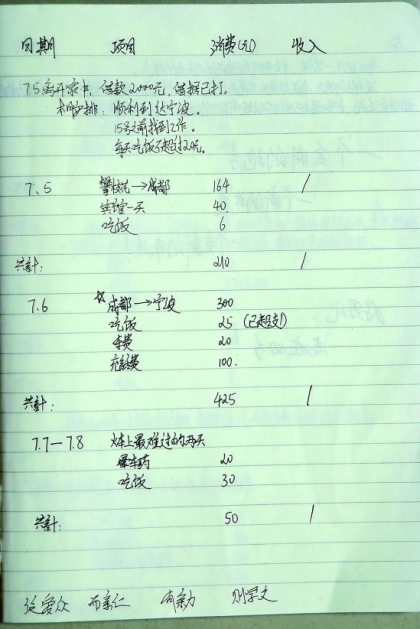 日期 项目 消费(元) 收入
7.5离开家乡，借款2000元，借据已打。
本月安排：顺利到达宁波。
15号之前找到工作。
每天吃饭不超过20元。
7.5 攀枝花→成都 164 /
住宿一天 40
吃饭 6
共计： 210 /
7.6 ☆成都→宁波 300
吃饭 25 (已超支)
车费 20
充话费 100.
共计： 425 /
7.7—7.8 火车上最难过的两天
晕车药 20
吃饭 30
共计： 50 /
泛爱众 而亲仁 有余力 则学文